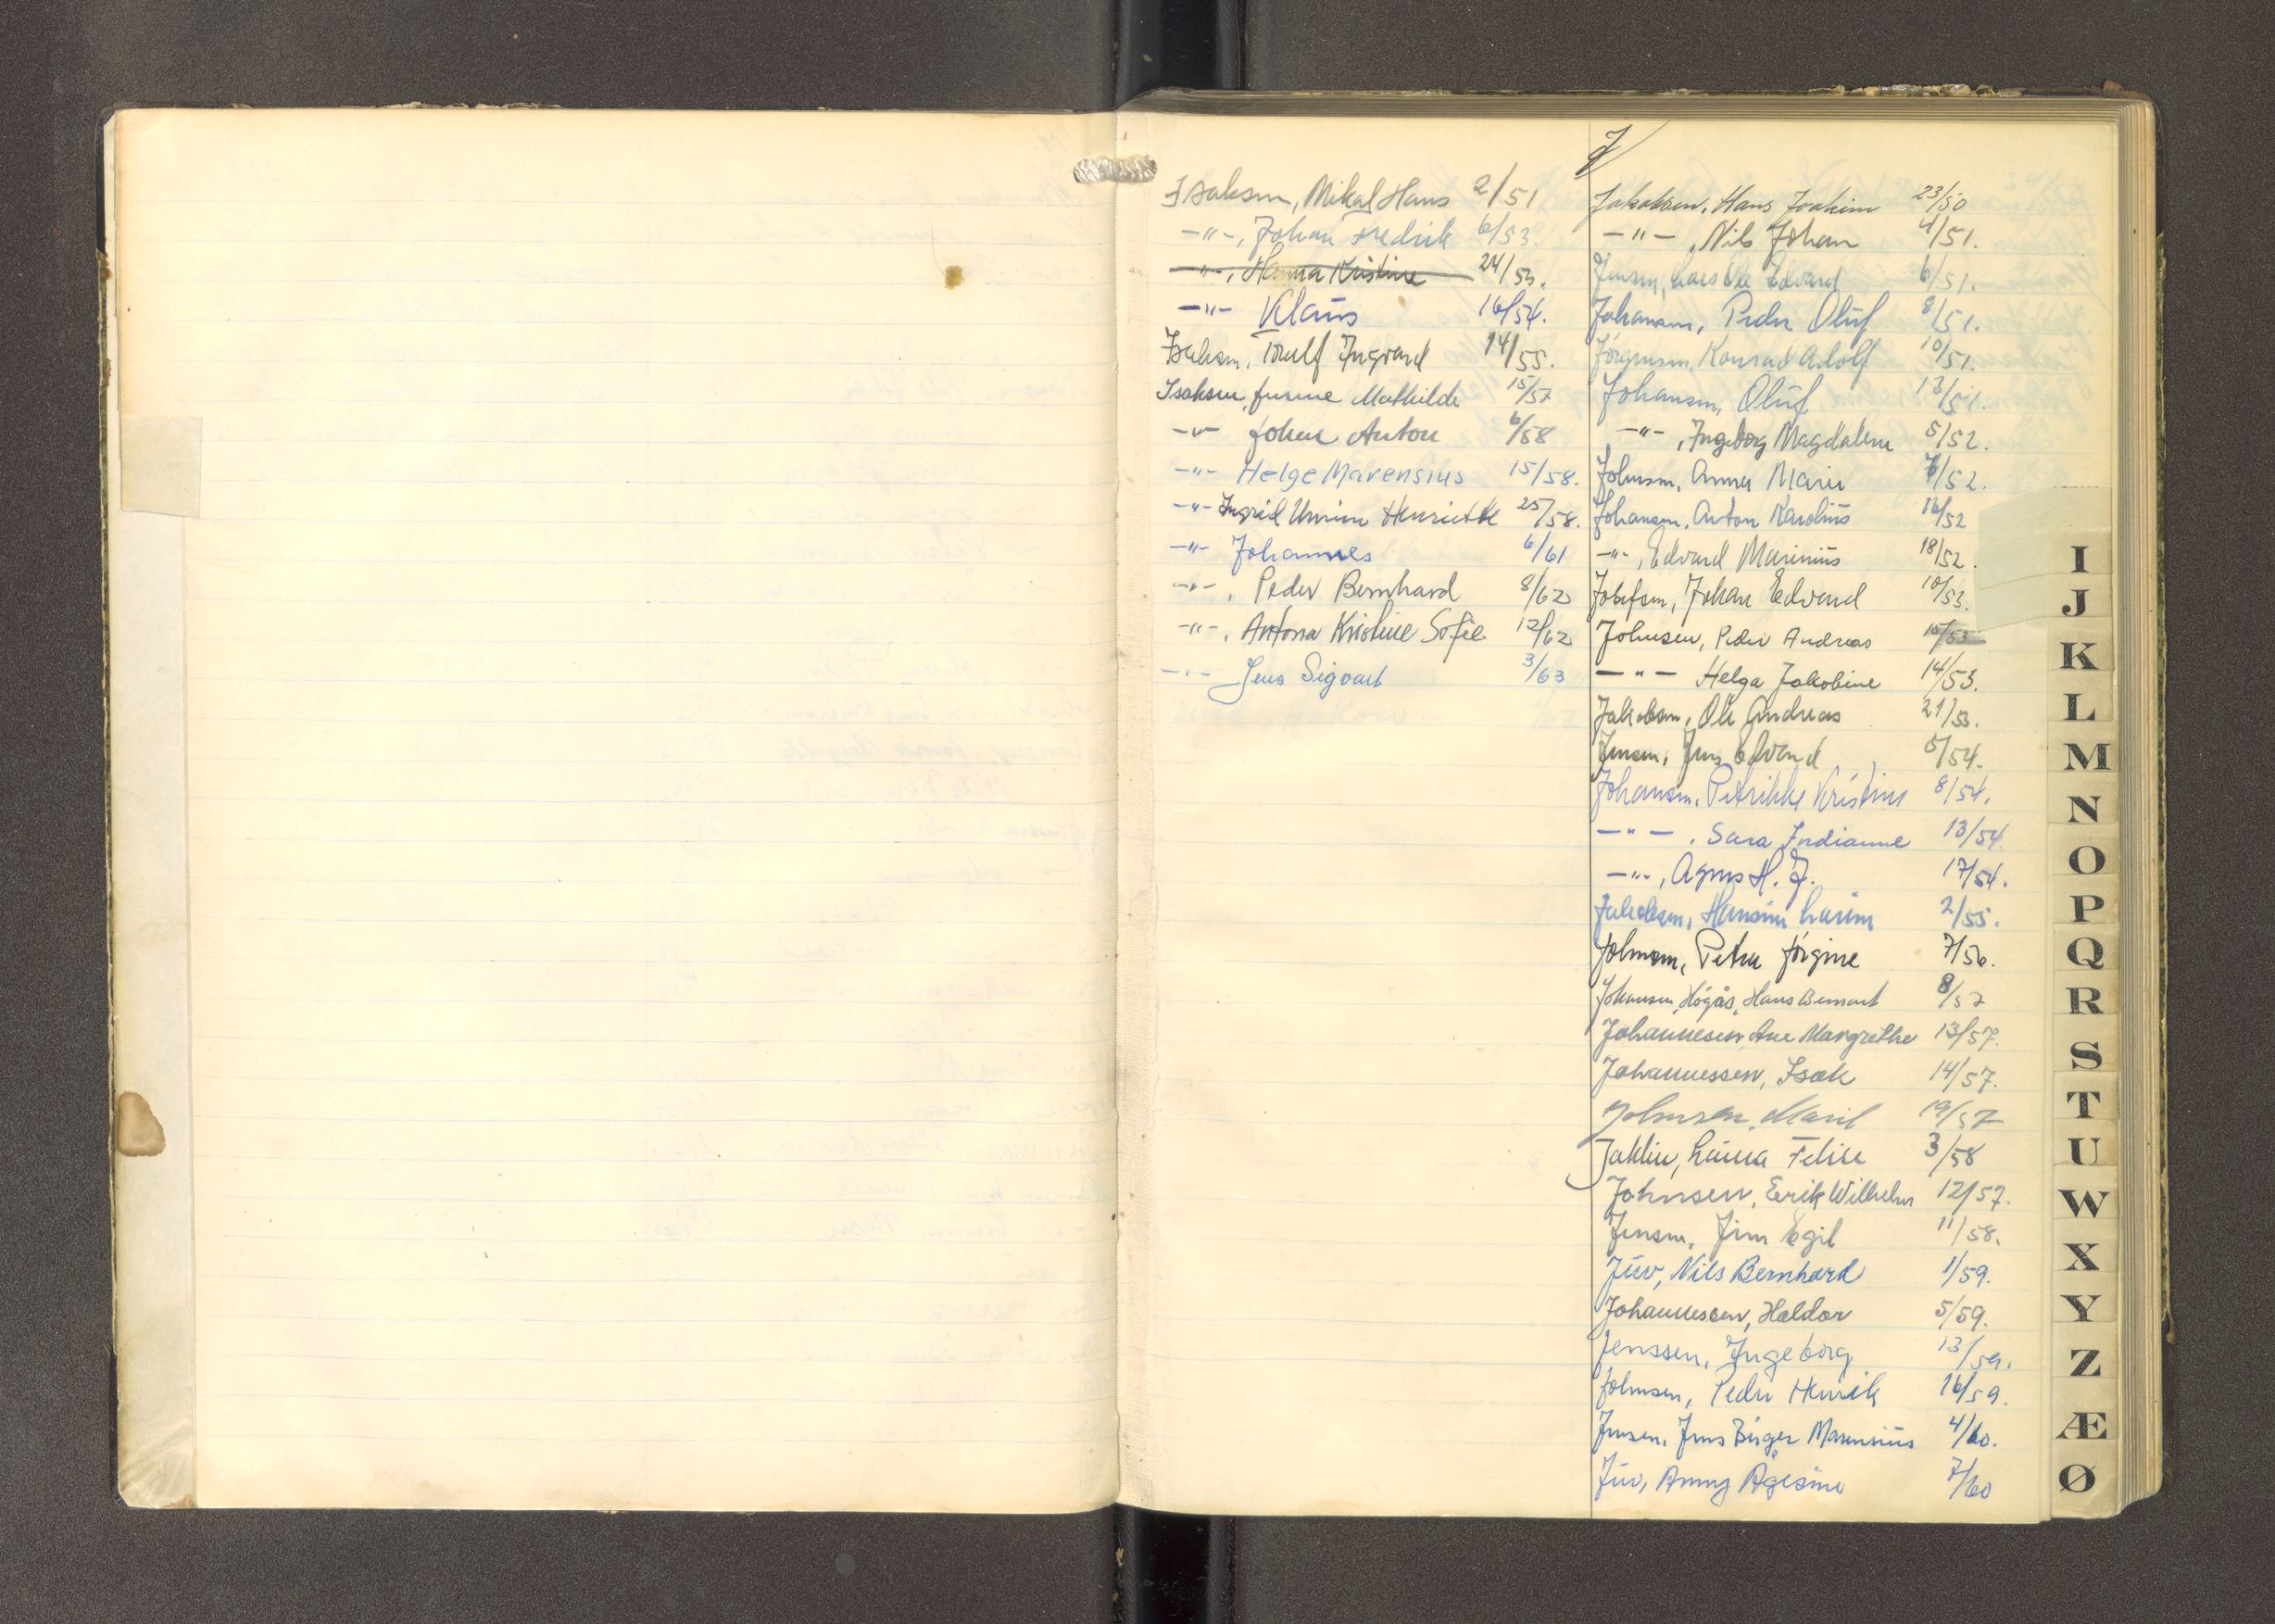 Isaksen, Mikal Hans 2/51
-"-, Johan Fredrik 6/53.
-"-, Hanna Kristine 24/53.
-"- Klaus 16/54.
Isaksen, Rulf Ingvard 14/55.
Isaksen, Mathilde 15/57
-"- Johan Anton 6/58
-"- Helge Marensius 15/58.
-"- Ingrid Unnion Henriette 25/58.
-"- Johannes 6/61
-"-, Peder Bernhard 8/62
-"-, Antona Kristine Sofie 12/62
-"- Jens Sigvart 3/63
J
Jakobsen, Hans Joakim 23/50
-"-, Nils Johan 4/51.
Jensen, Lars Ole Edvard 6/51.
Johansen, Peder Oluf 8/51.
Jørgensen, Konrad Adolf 10/51.
Johansen, Oluf 13/51.
-"-, Ingeborg Magdalene 5/52.
Johnsen, Anna Marie 7/52.
Johansen, Anton Karolius 16/52
-"-, Edvard Marinius 18/52.
Josefsen, Johan Edvard 10/53.
Johnsen, Peder Andreas 15/53
-"- Helga Jakobine 14/53.
Jakobsen, Ole Andreas 21/53.
Jensen, Jens Edvard 5/54.
Johansen, Petrikke Kristine 8/54.
-"-, Sara Indianne 13/54
-"-, Agnes H. J. 17/54.
Jakobsen, Hansine Larine 2/55.
Johnsen, Petra Jørgine 7/56.
Johansen, Högås, Hans Bernart 8/57
Johannesen, Ane Margrethe 13/57.
Johannessen, Isak 14/57.
Johnsen, Marit 19/57
Jaklin, Laura Felise 3/58
Johnsen, Erik Wilhelm 12/57.
Jensen, Jim Egil 11/58.
Juv, Nils Bernhard 1/59.
Johannessen, Haldor 5/59.
Jenssen, Ingeborg 13/59.
Johnsen, Peder Henrik 16/59.
Jensen, Jens Birger Marensius 4/60.
Juv, Anny Ågesine 7/60
I
J
K
L
M
N
O
P
Q
R
S
T
U
W
X
Y
Z
Æ
Ø